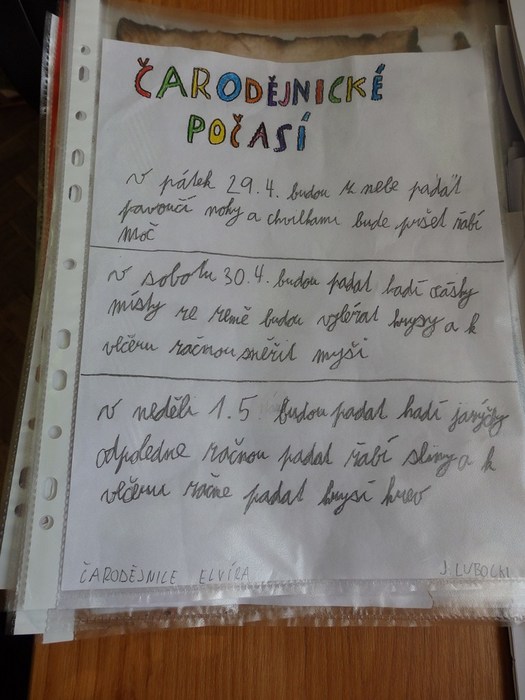 ČARODĚJNICKÉ
POČASÍ
v pátek 29.4. budou z nebe padat
pavoučí nohy a chvílkami bude pršet žabí
moč
v sobotu 30.4. budou padat hadí ocásky
místy ze země budou vylézat krysy a k
večeru začnou sněžit myši
v neděli 1.5 budou padat hadí jazýčky
odpoledne začnou padat žabí sliny a k
večeru začne padat krysí krev
ČARODĚJNICE ELVÍRA
J. LUBOCKI